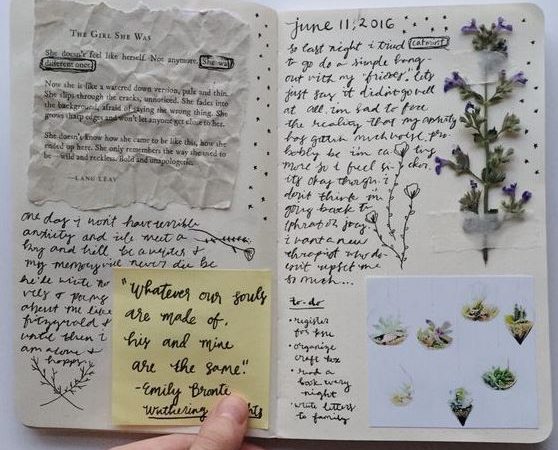 THE GIRL SHE WAS
She doesn't feel like herself. Not anymore. She was
different once.
Now she is like a watered down version, pale and thin.
She slips through the cracks, unnoticed. She fades into
the background, afraid of saying the wrong thing. She
grows sharp edges and won't let anyone get close to her.
She doesn't know how she came to be like this, how she
ended up here. She only remembers the way she used to
be—wild and reckless. Bold and unapologetic.
—LANG LEAV
one day i won't have terrible
anxiety and i'll meet a
boy and he'll be a writer &
my memory will never die bc
he'll write no
vels & poems
about me like
fitzgerald &
until then i
am alone &
happy
"Whatever our souls
are made of,
his and mine
are the same."
-Emily Brontë
Wuthering
june 11, 2016
so last night i tried
catmint
to go do a simple hang
out with my "friends", lets
just say it didn't go well
at all. im sad to face
the reality that my anxiety
has gotten much worse. pro
bably bc i'm
more so i feel
its okay though i
don't think im
going back to
i want a new
therapist who do
esn't upset me
so much...
to-do
• register
for
• organize
craft box
• read a
book every
night
• write letters
to family